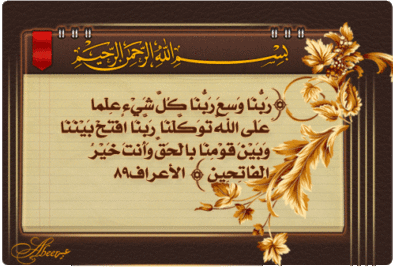 بسم الله الرحمن الرحيم
﴿ رَبُّنَا وَسِعَ رَبُّنَا كُلَّ شَيْءٍ عِلْمًا
عَلَى اللَّهِ تَوَكَّلْنَا رَبَّنَا افْتَحْ بَيْنَنَا
وَبَيْنَ قَوْمِنَا بِالْحَقِّ وَأَنتَ خَيْرُ
الْفَاتِحِينَ ﴾ الأعراف٨٩
Abeer عبير